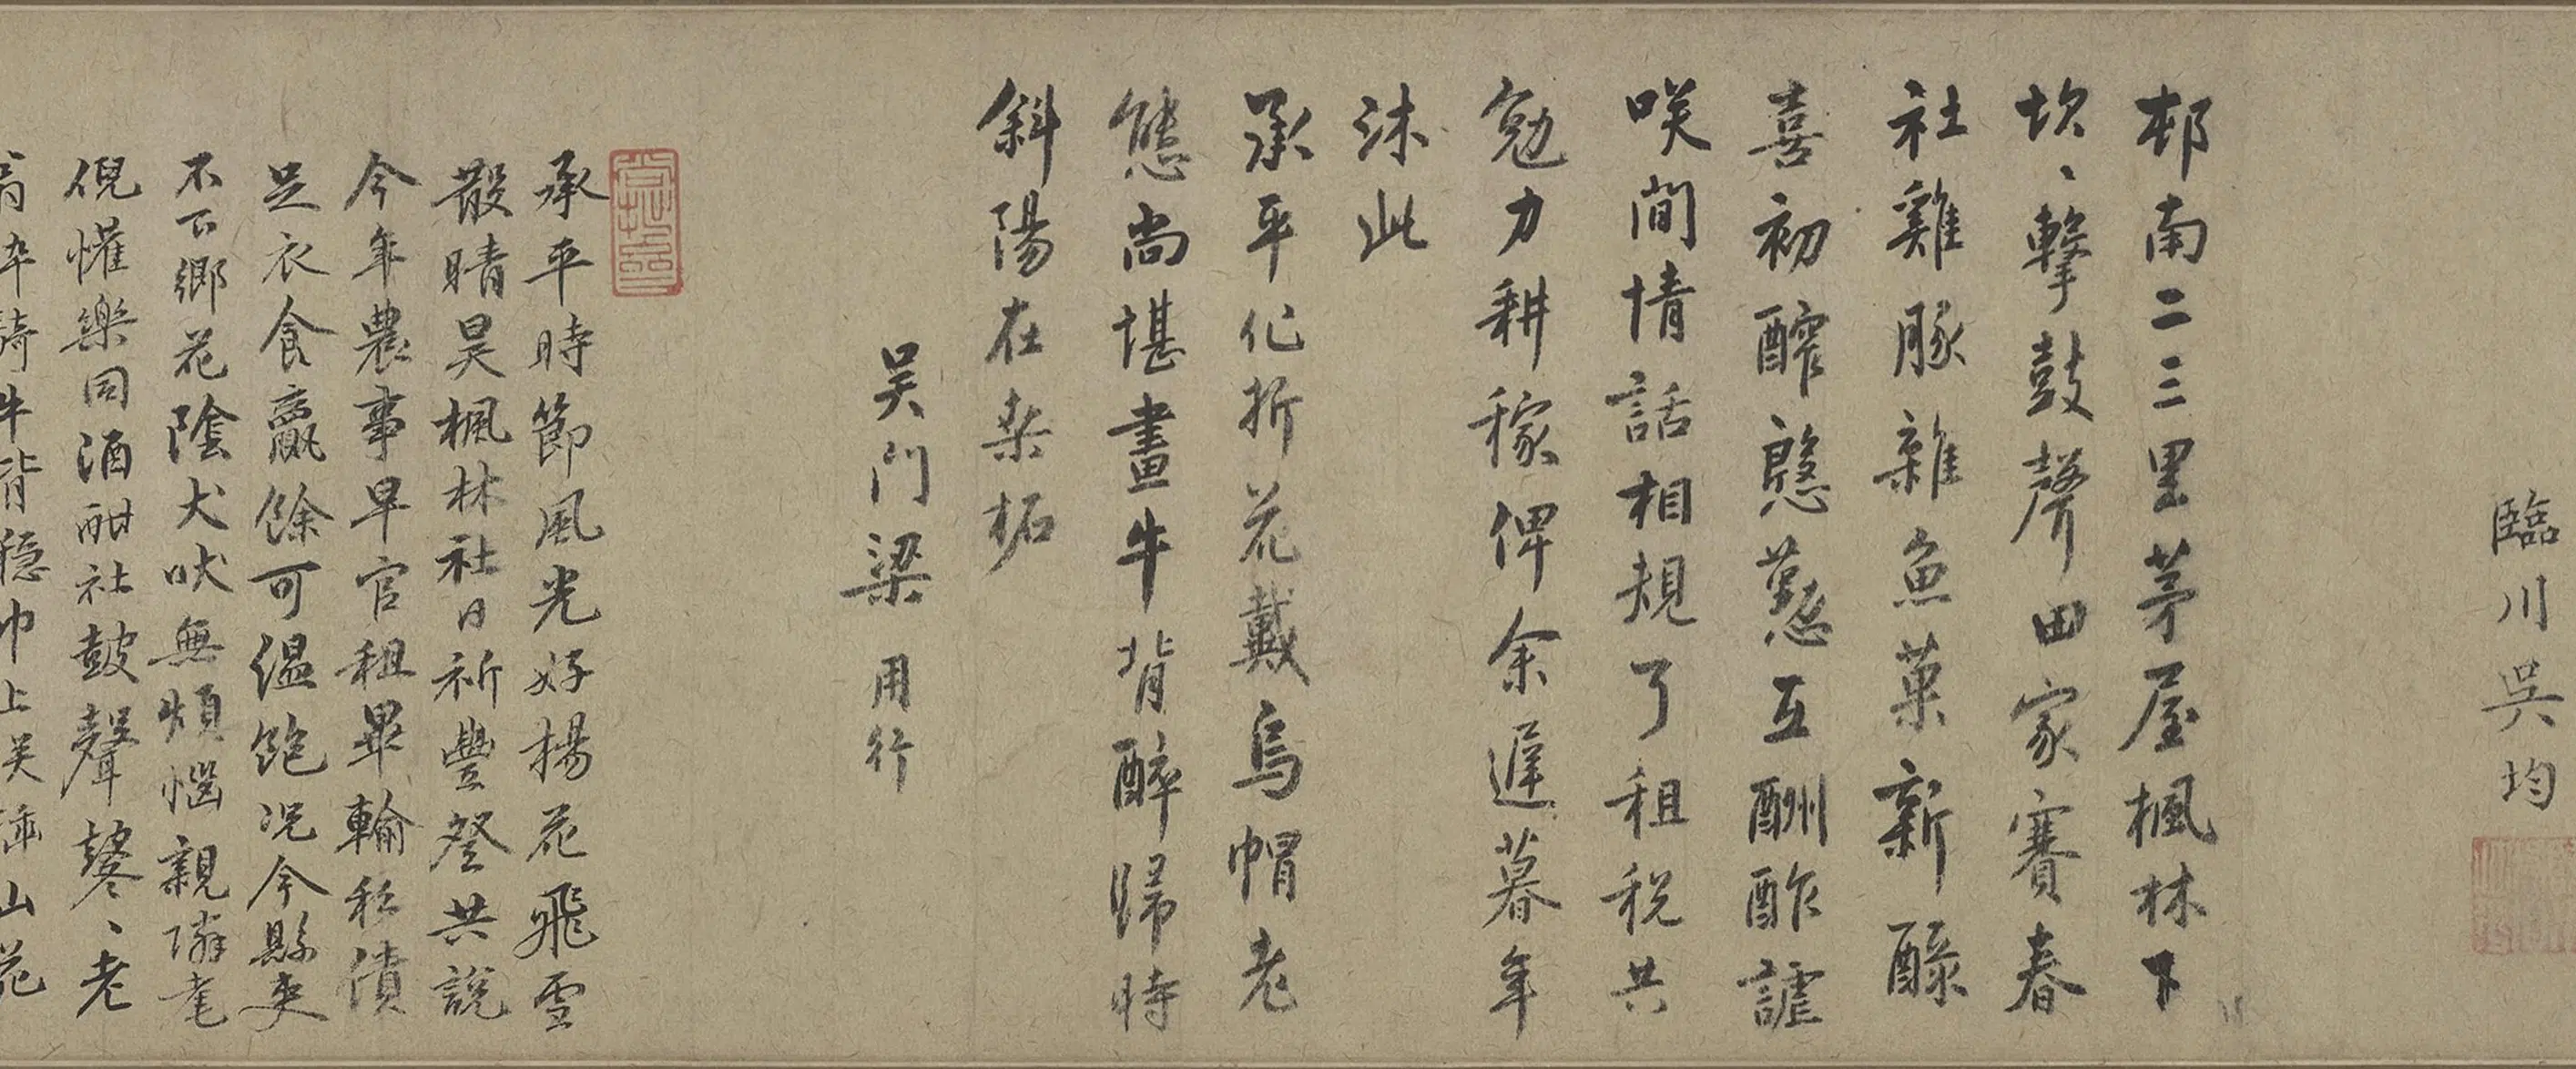 臨川吳均
邨南二三里茅屋楓林下
坎、擊鼓聲田家賽春
社雞豚雜魚菓新醁
喜初醡慇懃互酬酢謔
咲間情話相規了租稅共
勉力耕稼俾余遲暮年
沐此
承平化折花戴烏帽老
態尚堪畫牛背醉歸時
斜陽在桒柘
吴门梁用行
承平時節風光好楊花飛雪
散晴昊楓林社日祈豐登共說
今年農事早官租畢輸私債
足衣食贏餘可温飽况今縣吏
不下鄉花陰犬吠無煩惱親鄰耄
倪懽樂同酒酣社鼓聲鼕、老
翁卒騎牛背穏巾上笑 山花